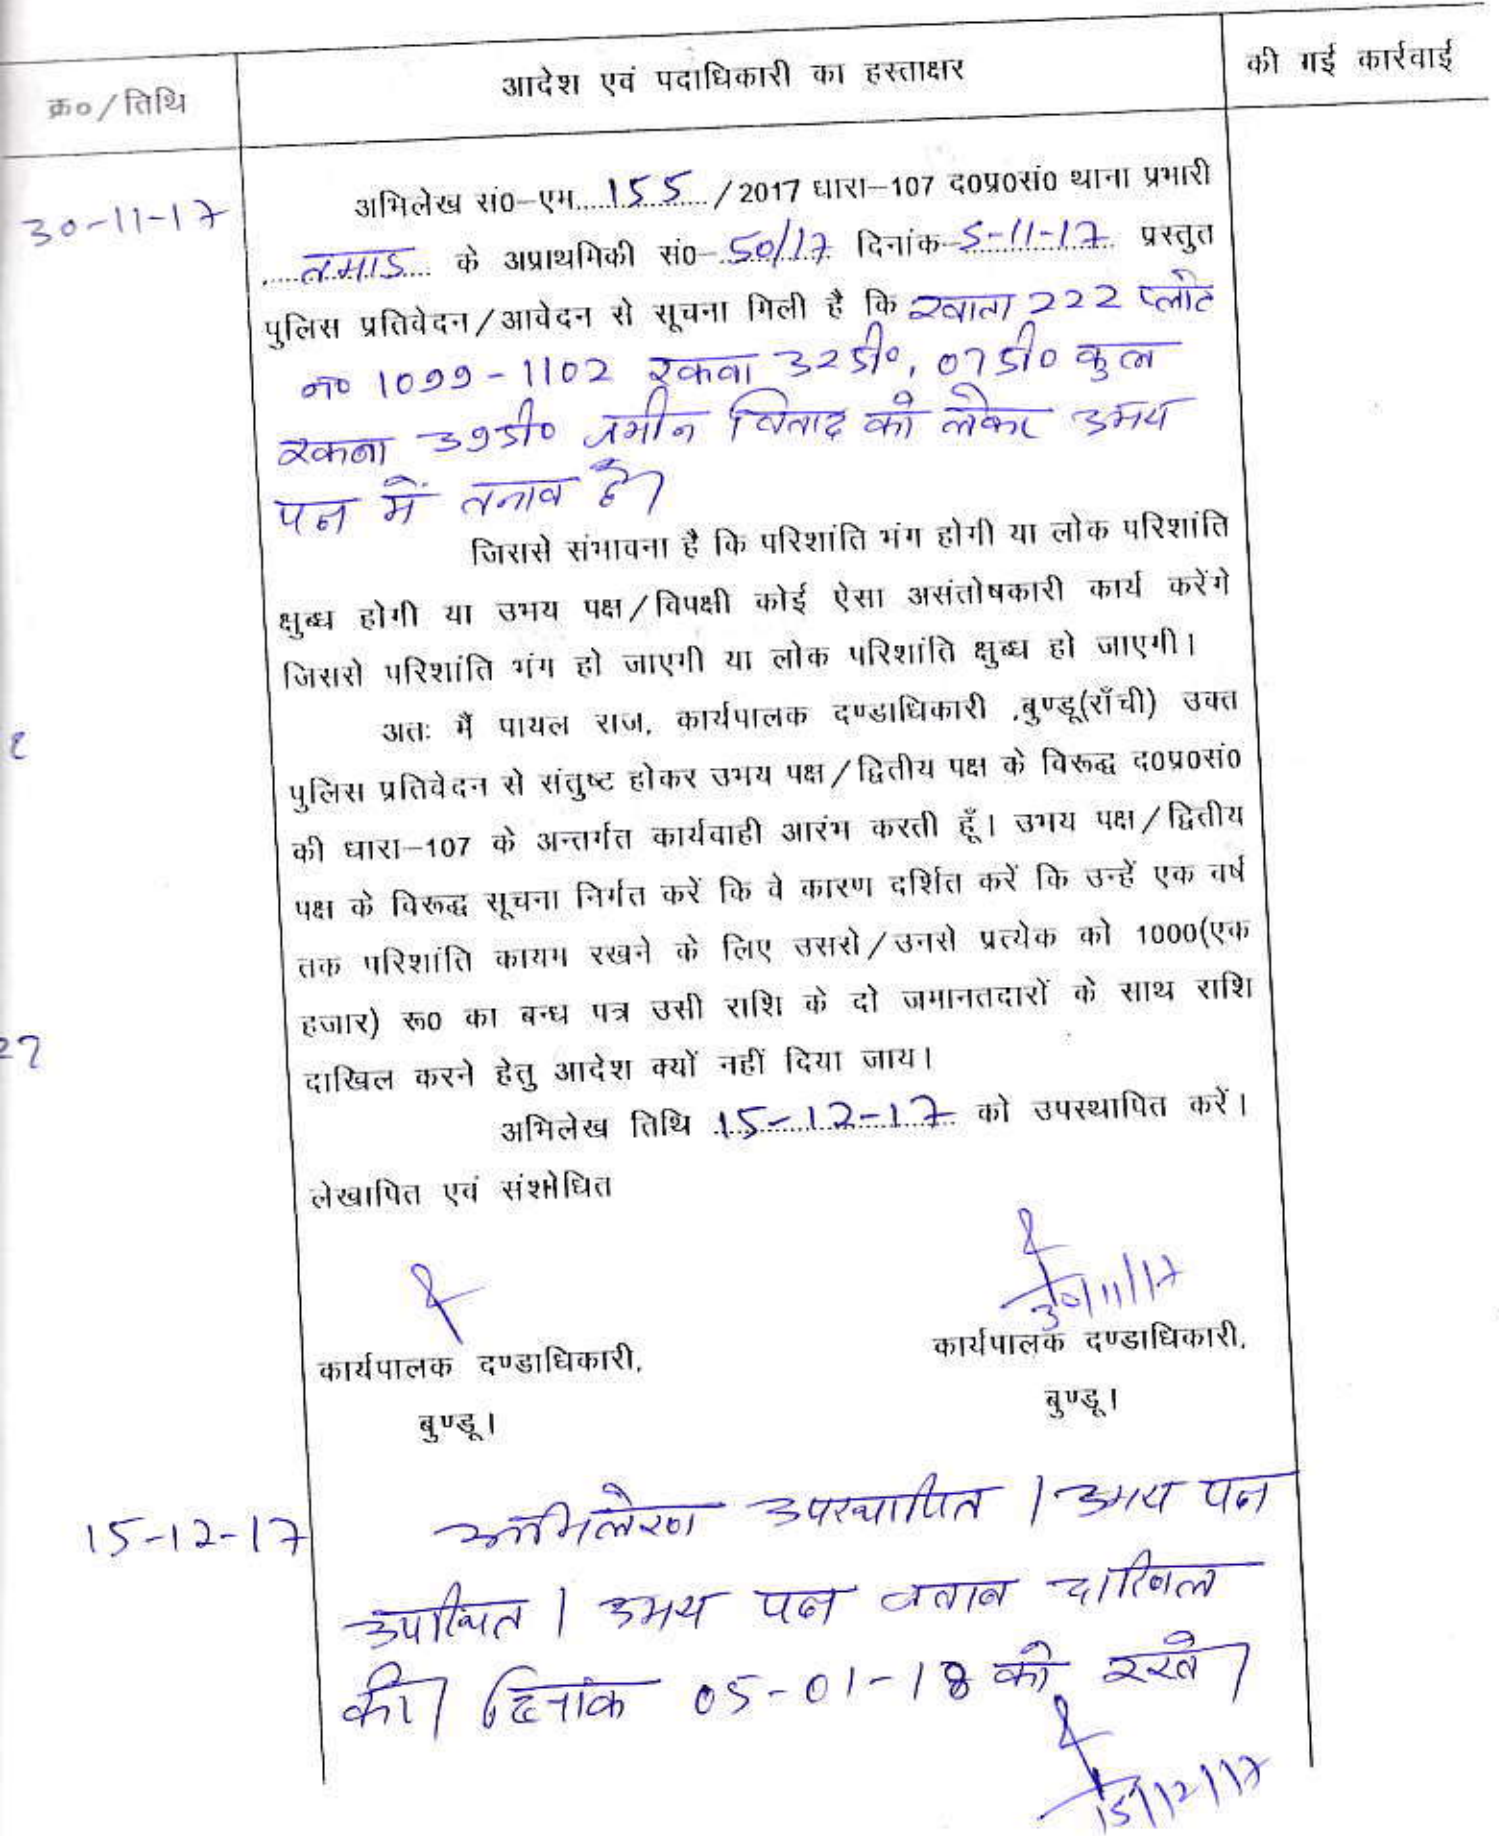 क्र०/तिथि आदेश एवं पदाधिकारी का हस्ताक्षर की गई कार्रवाई
30-11-17 अभिलेख सं०-एम 155 /2017 धारा-107 द०प्र०सं० थाना प्रभारी
तमाड के अप्राथमिकी सं०- 50/17 दिनांक 5-11-17 प्रस्तुत
पुलिस प्रतिवेदन/आवेदन से सूचना मिली है कि खाता 222 प्लौट
नं० 1099-1102 रकवा 32डी०, 07डी० कुल
रकबा 39डी० जमीन विवाद को लेकर उभय
पक्ष में तनाव है।
जिससे संभावना है कि परिशांति भंग होगी या लोक परिशांति
क्षुब्ध होगी या उभय पक्ष/विपक्षी कोई ऐसा असंतोषकारी कार्य करेंगे
जिससे परिशांति भंग हो जाएगी या लोक परिशांति क्षुब्ध हो जाएगी।
अतः मैं पायल राज, कार्यपालक दण्डाधिकारी ,बुण्डू(राँची) उक्त
पुलिस प्रतिवेदन से संतुष्ट होकर उभय पक्ष/द्वितीय पक्ष के विरूद्ध द०प्र०सं०
की धारा-107 के अन्तर्गत कार्यवाही आरंभ करती हूँ। उभय पक्ष/द्वितीय
पक्ष के विरूद्ध सूचना निर्गत करें कि वे कारण दर्शित करें कि उन्हें एक वर्ष
तक परिशांति कायम रखने के लिए उससे/उनसे प्रत्येक को 1000(एक
हजार) रू० का बन्ध पत्र उसी राशि के दो जमानतदारों के साथ राशि
दाखिल करने हेतु आदेश क्यों नहीं दिया जाय।
अभिलेख तिथि 15-12-17 को उपस्थापित करें।
लेखापित एवं संशोधित
30/11/17
कार्यपालक दण्डाधिकारी, कार्यपालक दण्डाधिकारी,
बुण्डू। बुण्डू।
15-12-17 अभिलेख उपस्थापित। उभय पक्ष
उपस्थित। उभय पक्ष जवाब दाखिल
करें। दिनांक 05-01-18 को रखें।
15/12/17